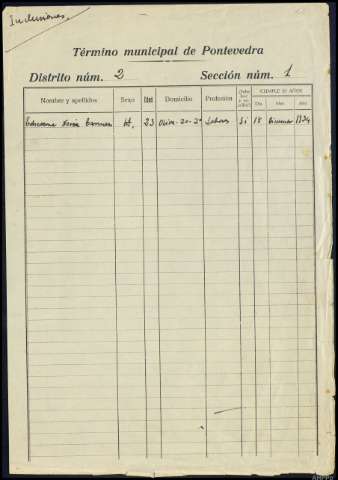 Inclusiones.
Término municipal de Pontevedra
Distrito núm. 2 Sección núm. 1
Nombre y apellidos Sexo Edad Domicilio Profesión CUMPLE 23 AÑOS
Día Mes Año
H. 23 Oliva-20-3º Labores Si 18 1934
AHPPO